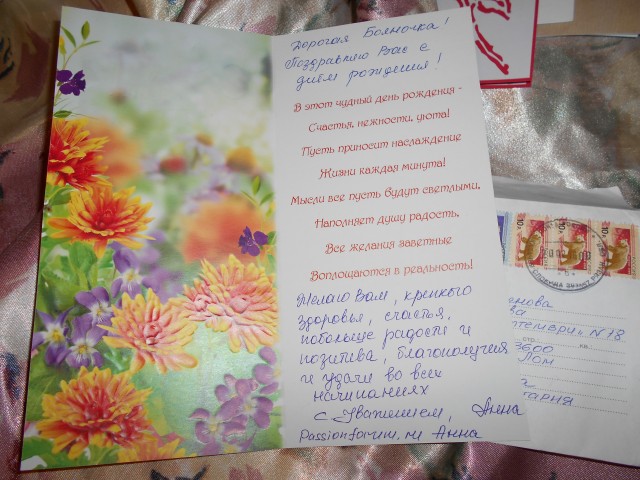 Дорогая Бояночка!
Поздравляю Вас с
днём рождения!
В этот чудный день рождения -
Счастья, нежности, уюта!
Пусть приносит наслаждение
Жизни каждая минута!
Мысли все пусть будут светлыми,
Наполняет душу радость,
Все желания заветные
Воплощаются в реальность!
Желаю Вам, крепкого
здоровья, счастья,
побольше радости и
позитива, благополучия
и удачи во всех
начинаниях
С Уважением, Анна
Passionforum.ru Анна
нова
ва
птември" N 18
3600
Лом
гария